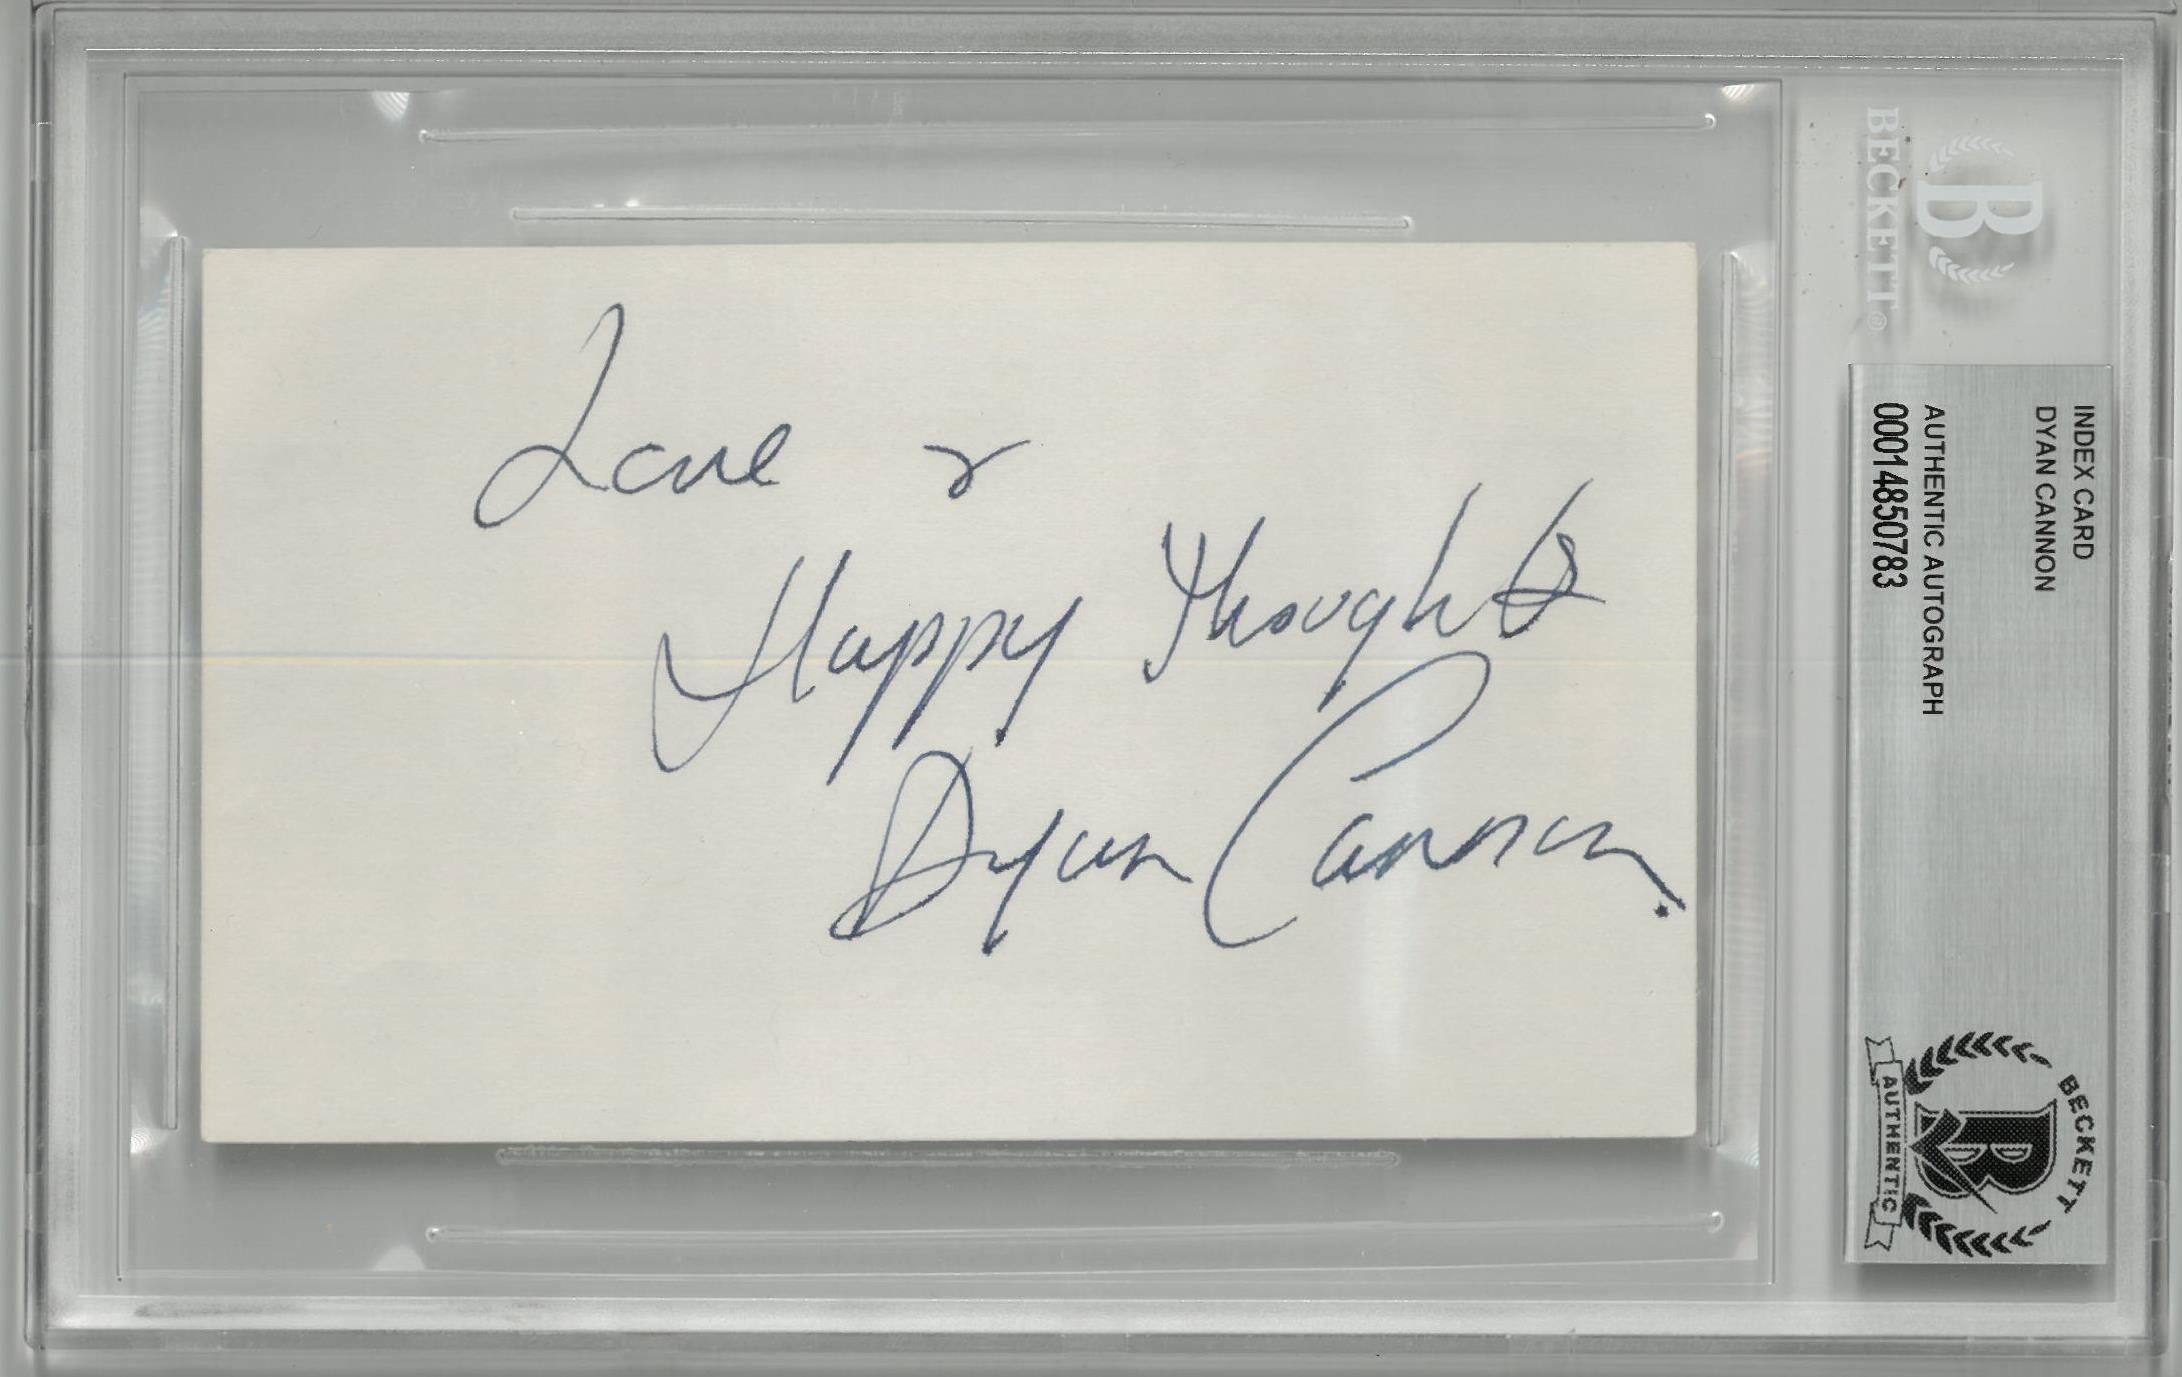 Love &
Happy thoughts
Dyan Cannon.
BECKETT®
B
INDEX CARD
DYAN CANNON
AUTHENTIC AUTOGRAPH
00014850783
BECKETT
B
AUTHENTIC